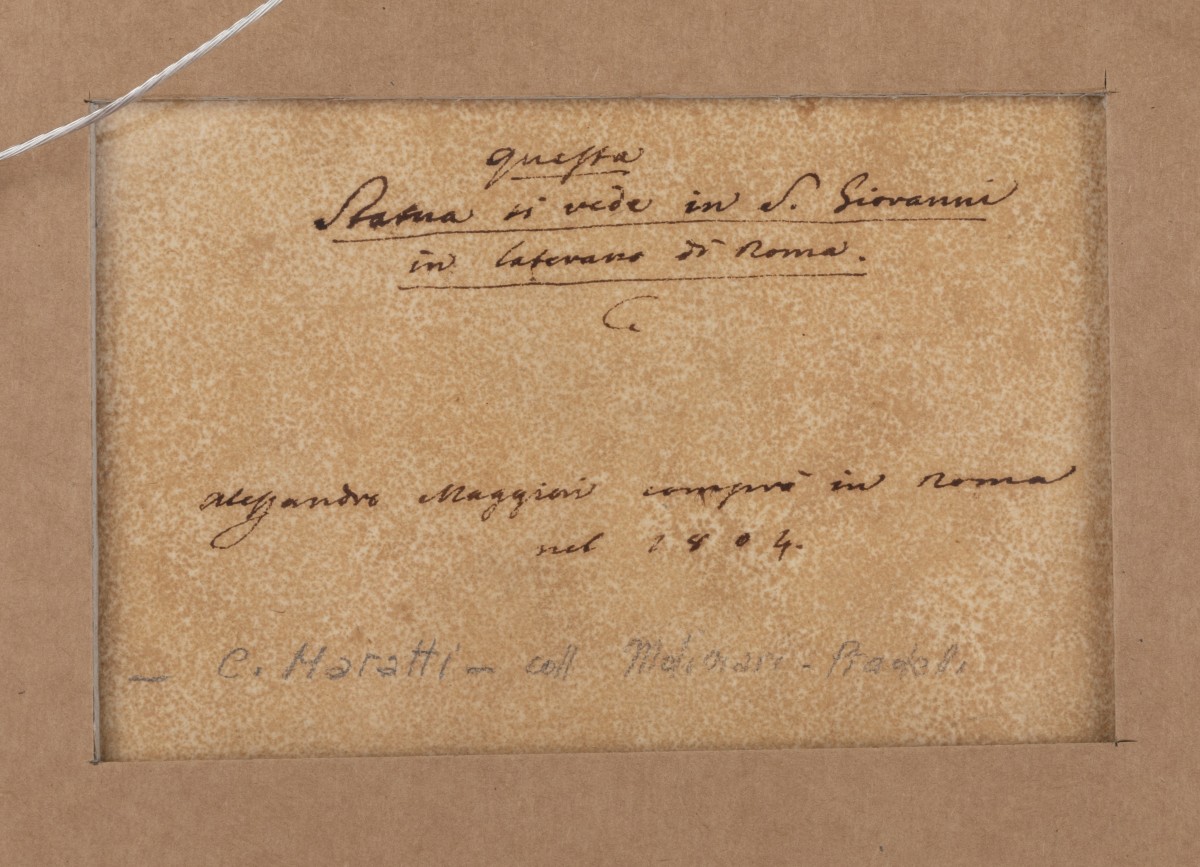 questa
Statua si vede in S. Giovanni
in Laterano di Roma.
C.
Alessandro Maggiori comprò in Roma
nel 1804.
– C. Maratti – coll Molinari – Pradelli